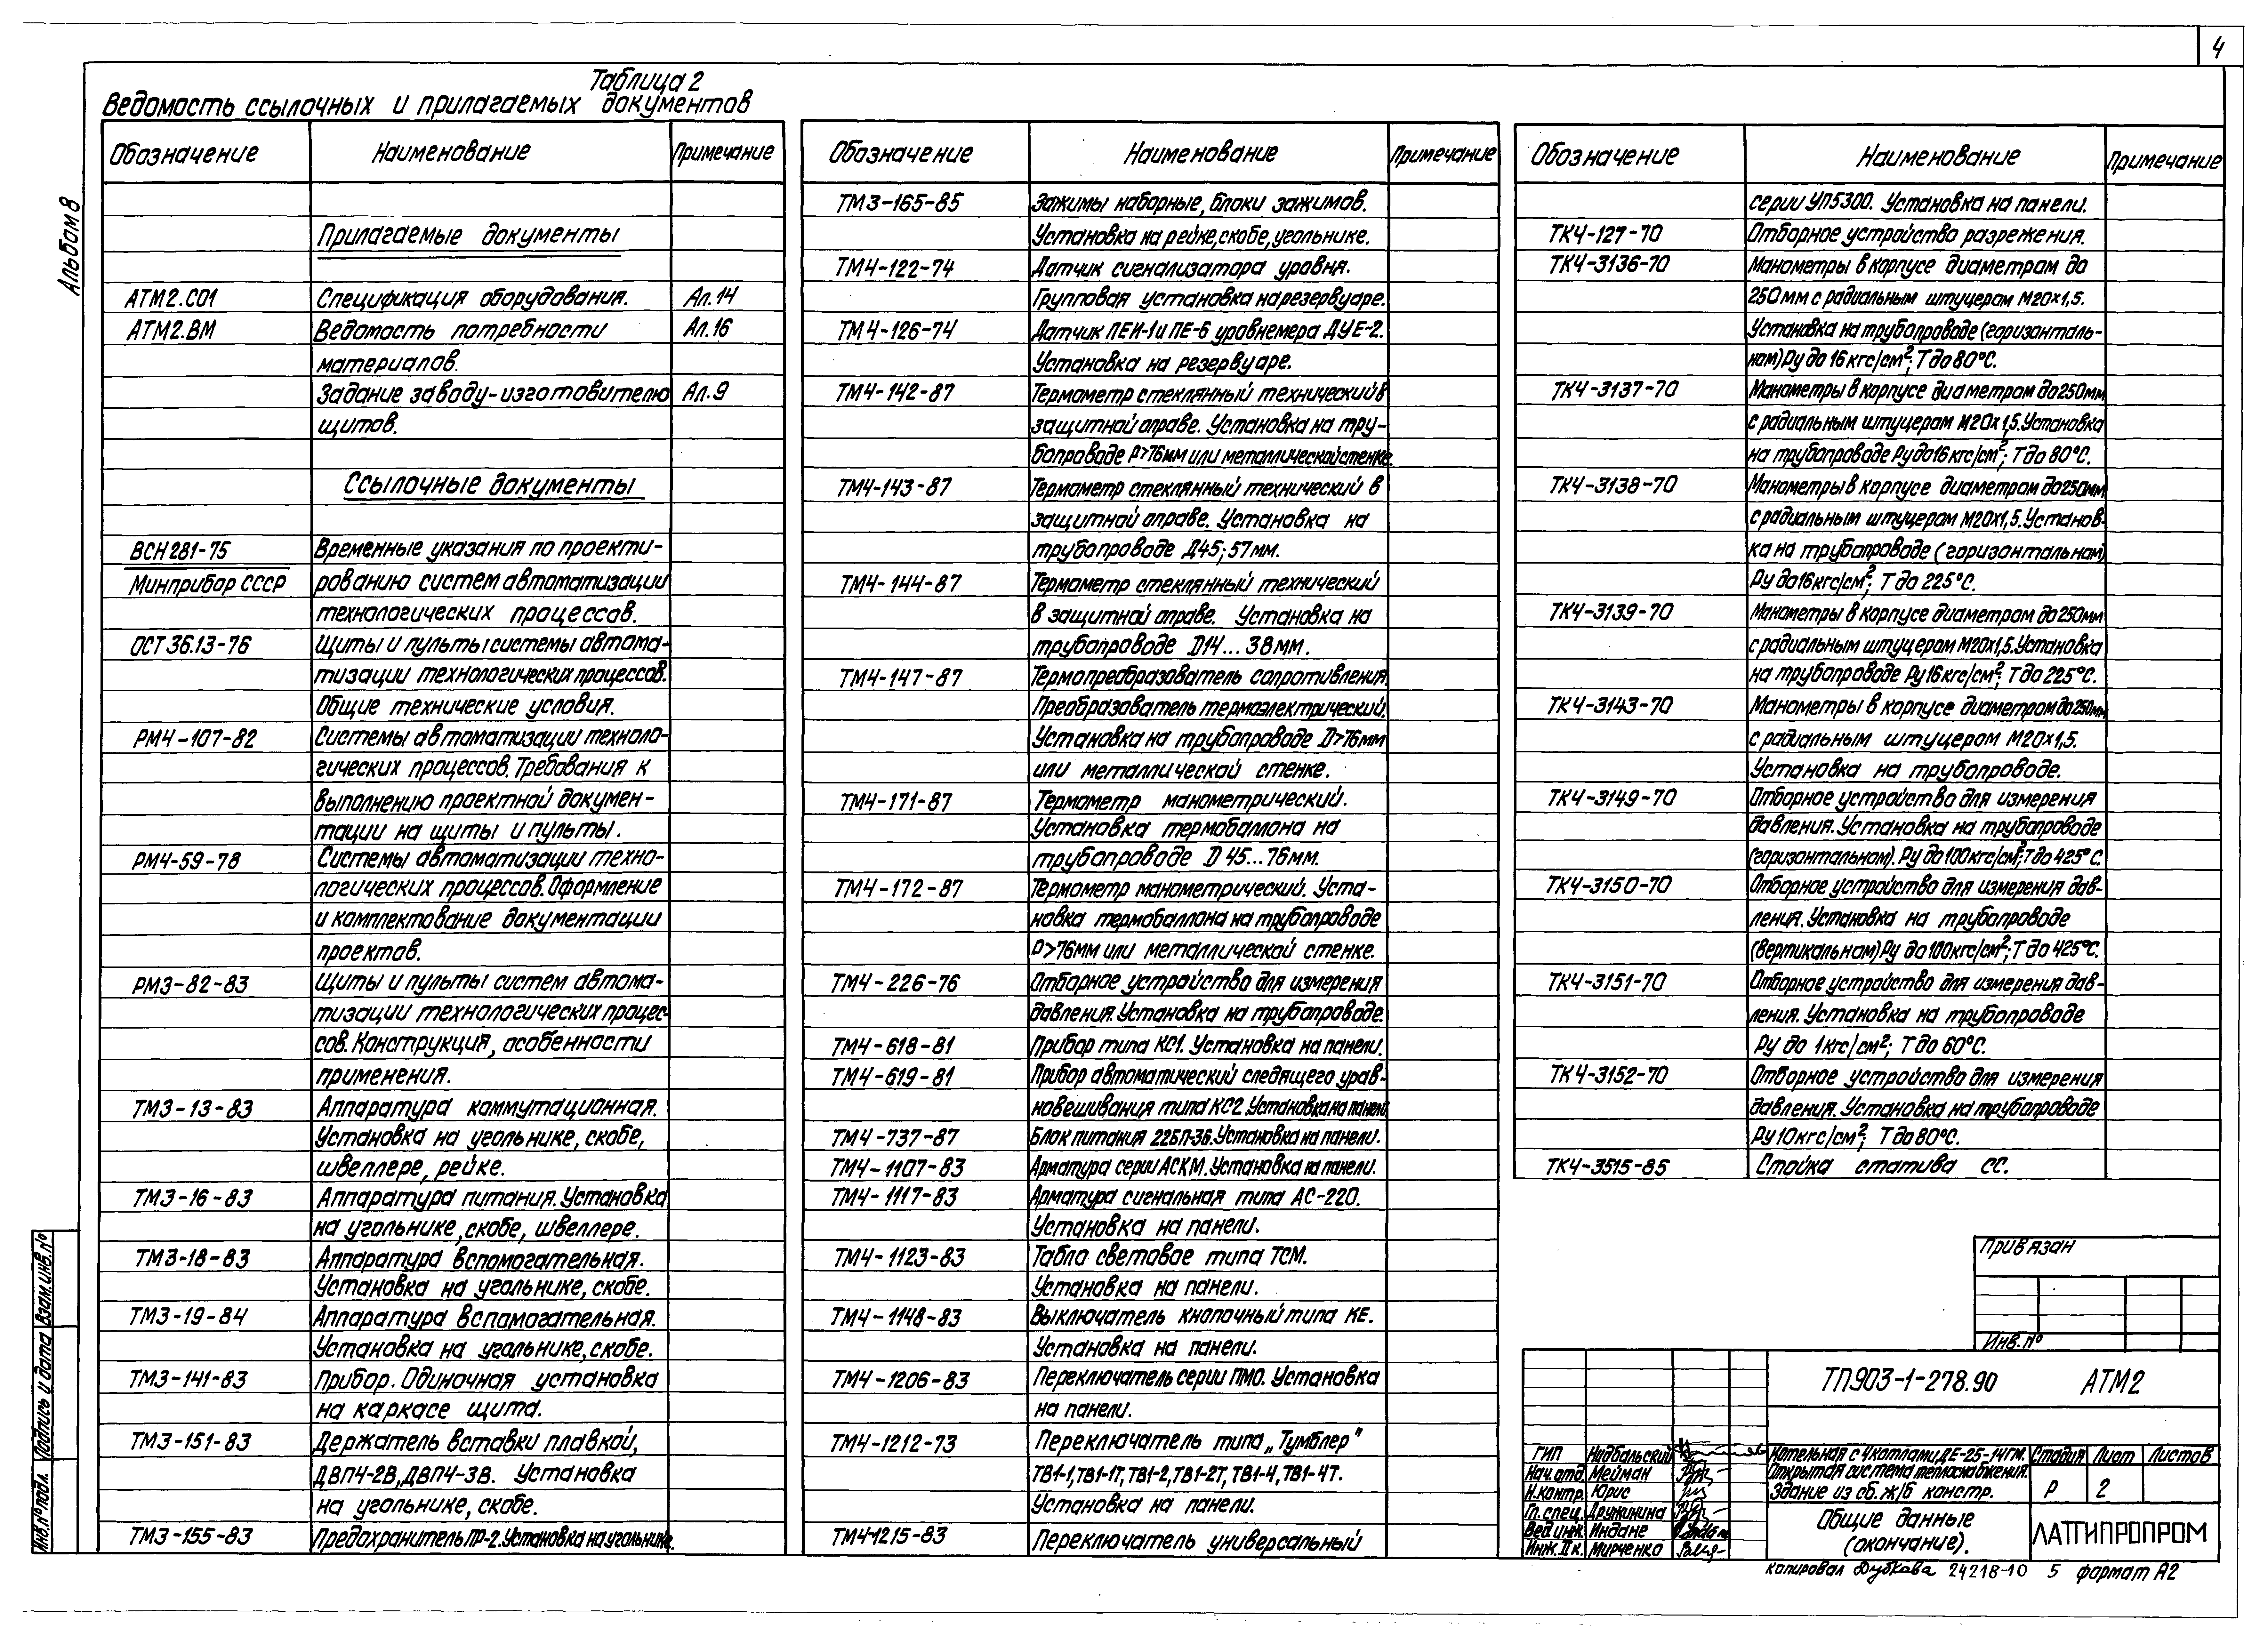 4
Альбом 8
Таблица 2
Ведомость ссылочных и прилагаемых документов
Обозначение Наименование Примечание
Прилагаемые документы
АТМ2.СО1 Спецификация оборудования. Ал.14
АТМ2.ВМ Ведомость потребности Ал.16
материалов.
Задание заводу-изготовителю Ал.9
щитов.
Ссылочные документы
ВСН 281-75 Временные указания по проекти-
Минприбор СССР рованию систем автоматизации
технологических процессов.
ОСТ 36.13-76 Щиты и пульты системы автома-
тизации технологических процессов.
Общие технические условия.
РМ4-107-82 Системы автоматизации техноло-
гических процессов. Требования к
выполнению проектной докумен-
тации на щиты и пульты.
РМ4-59-78 Системы автоматизации техно-
логических процессов. Оформление
и комплектование документации
проектов.
РМ3-82-83 Щиты и пульты систем автома-
тизации технологических процес-
сов. Конструкция, особенности
применения.
ТМ3-13-83 Аппаратура коммутационная.
Установка на угольнике, скобе,
швеллере, рейке.
ТМ3-16-83 Аппаратура питания. Установка
на угольнике, скобе, швеллере.
ТМ3-18-83 Аппаратура вспомогательная.
Установка на угольнике, скобе.
ТМ3-19-84 Аппаратура вспомогательная.
Установка на угольнике, скобе.
ТМ3-141-83 Прибор. Одиночная установка
на каркасе щита.
ТМ3-151-83 Держатель вставки плавкой,
ДВП4-2В, ДВП4-3В. Установка
на угольнике, скобе.
ТМ3-155-83 Предохранитель ПР-2. Установка на угольнике.
Обозначение Наименование Примечание
ТМ3-165-85 Зажимы наборные, блоки зажимов.
Установка на рейке, скобе, угольнике.
ТМ4-122-74 Датчик сигнализатора уровня.
Групповая установка на резервуаре.
ТМ4-126-74 Датчик ПЕИ-1 и ПЕ-6 уровнемера ДУЕ-2.
Установка на резервуаре.
ТМ4-142-87 Термометр стеклянный технический в
защитной оправе. Установка на тру-
бопроводе D>76мм или металлической стенке.
ТМ4-143-87 Термометр стеклянный технический в
защитной оправе. Установка на
трубопроводе Д45; 57мм.
ТМ4-144-87 Термометр стеклянный технический
в защитной оправе. Установка на
трубопроводе D14...38мм.
ТМ4-147-87 Термопреобразователь сопротивления.
Преобразователь термоэлектрический.
Установка на трубопроводе D>76мм
или металлической стенке.
ТМ4-171-87 Термометр манометрический.
Установка термобаллона на
трубопроводе D 45...76мм.
ТМ4-172-87 Термометр манометрический. Уста-
новка термобаллона на трубопроводе
D>76мм или металлической стенке.
ТМ4-226-76 Отборное устройство для измерения
давления. Установка на трубопроводе.
ТМ4-618-81 Прибор типа КС1. Установка на панели.
ТМ4-619-81 Прибор автоматический следящего урав-
новешивания типа КС2. Установка на панели
ТМ4-737-87 Блок питания 22БП-36. Установка на панели.
ТМ4-1107-83 Арматура серии АСКМ. Установка на панели.
ТМ4-1117-83 Арматура сигнальная типа АС-220.
Установка на панели.
ТМ4-1123-83 Табло световое типа ТСМ.
Установка на панели.
ТМ4-1148-83 Выключатель кнопочный типа КЕ.
Установка на панели.
ТМ4-1206-83 Переключатель серии ПМО. Установка
на панели.
ТМ4-1212-73 Переключатель типа „Тумблер"
ТВ1-1, ТВ1-1Т, ТВ1-2, ТВ1-2Т, ТВ1-4, ТВ1-4Т.
Установка на панели.
ТМ4-1215-83 Переключатель универсальный
Обозначение Наименование Примечание
серии УП5300. Установка на панели.
ТК4-127-70 Отборное устройство разрежения.
ТК4-3136-70 Манометры в корпусе диаметром до
250мм с радиальным штуцером М20×1,5.
Установка на трубопроводе (горизонталь-
ном) Ру до 16 кгс/см²; Т до 80°С.
ТК4-3137-70 Манометры в корпусе диаметром до 250мм
с радиальным штуцером М20×1,5. Установка
на трубопроводе Ру до 16 кгс/см²; Т до 80°С.
ТК4-3138-70 Манометры в корпусе диаметром до 250мм
с радиальным штуцером М20×1,5. Установ-
ка на трубопроводе (горизонтальном)
Ру до 16 кгс/см²; Т до 225°С.
ТК4-3139-70 Манометры в корпусе диаметром до 250мм
с радиальным штуцером М20×1,5. Установка
на трубопроводе Ру 16 кгс/см²; Т до 225°С.
ТК4-3143-70 Манометры в корпусе диаметром до 250мм
с радиальным штуцером М20×1,5.
Установка на трубопроводе.
ТК4-3149-70 Отборное устройство для измерения
давления. Установка на трубопроводе
(горизонтальном). Ру до 100 кгс/см²; Т до 425°С.
ТК4-3150-70 Отборное устройство для измерения дав-
ления. Установка на трубопроводе
(вертикальном) Ру до 100 кгс/см²; Т до 425°С.
ТК4-3151-70 Отборное устройство для измерения дав-
ления. Установка на трубопроводе
Ру до 1 кгс/см²; Т до 60°С.
ТК4-3152-70 Отборное устройство для измерения
давления. Установка на трубопроводе
Ру 10 кгс/см²; Т до 80°С.
ТК4-3515-85 Стойка статива СС.
Привязан
Инв.№
ТП903-1-278.90 АТМ2
ГИП Нидбальский
Нач.отд Мейман
Н.контр. Юрис
Гл.спец. Дружинина
Вед.инж. Индане
Инж. II к. Мирченко
Котельная с 4 котлами ДЕ-25-14ГМ.
Открытая система теплоснабжения.
Здание из сб. ж/б констр.
Стадия Лист Листов
Р 2
Общие данные
(окончание).
ЛАТГИПРОПРОМ
копировал Дубкова 24218-10 5 формат А2
Инв.№ подл. Подпись и дата Взам.инв.№